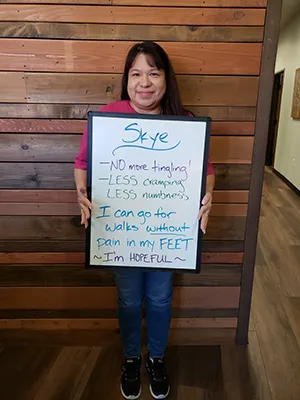 Skye
—NO more tingling!
—LESS cramping
LESS numbness
I can go for
walks without
pain in my FEET
~I'm HOPEFUL~